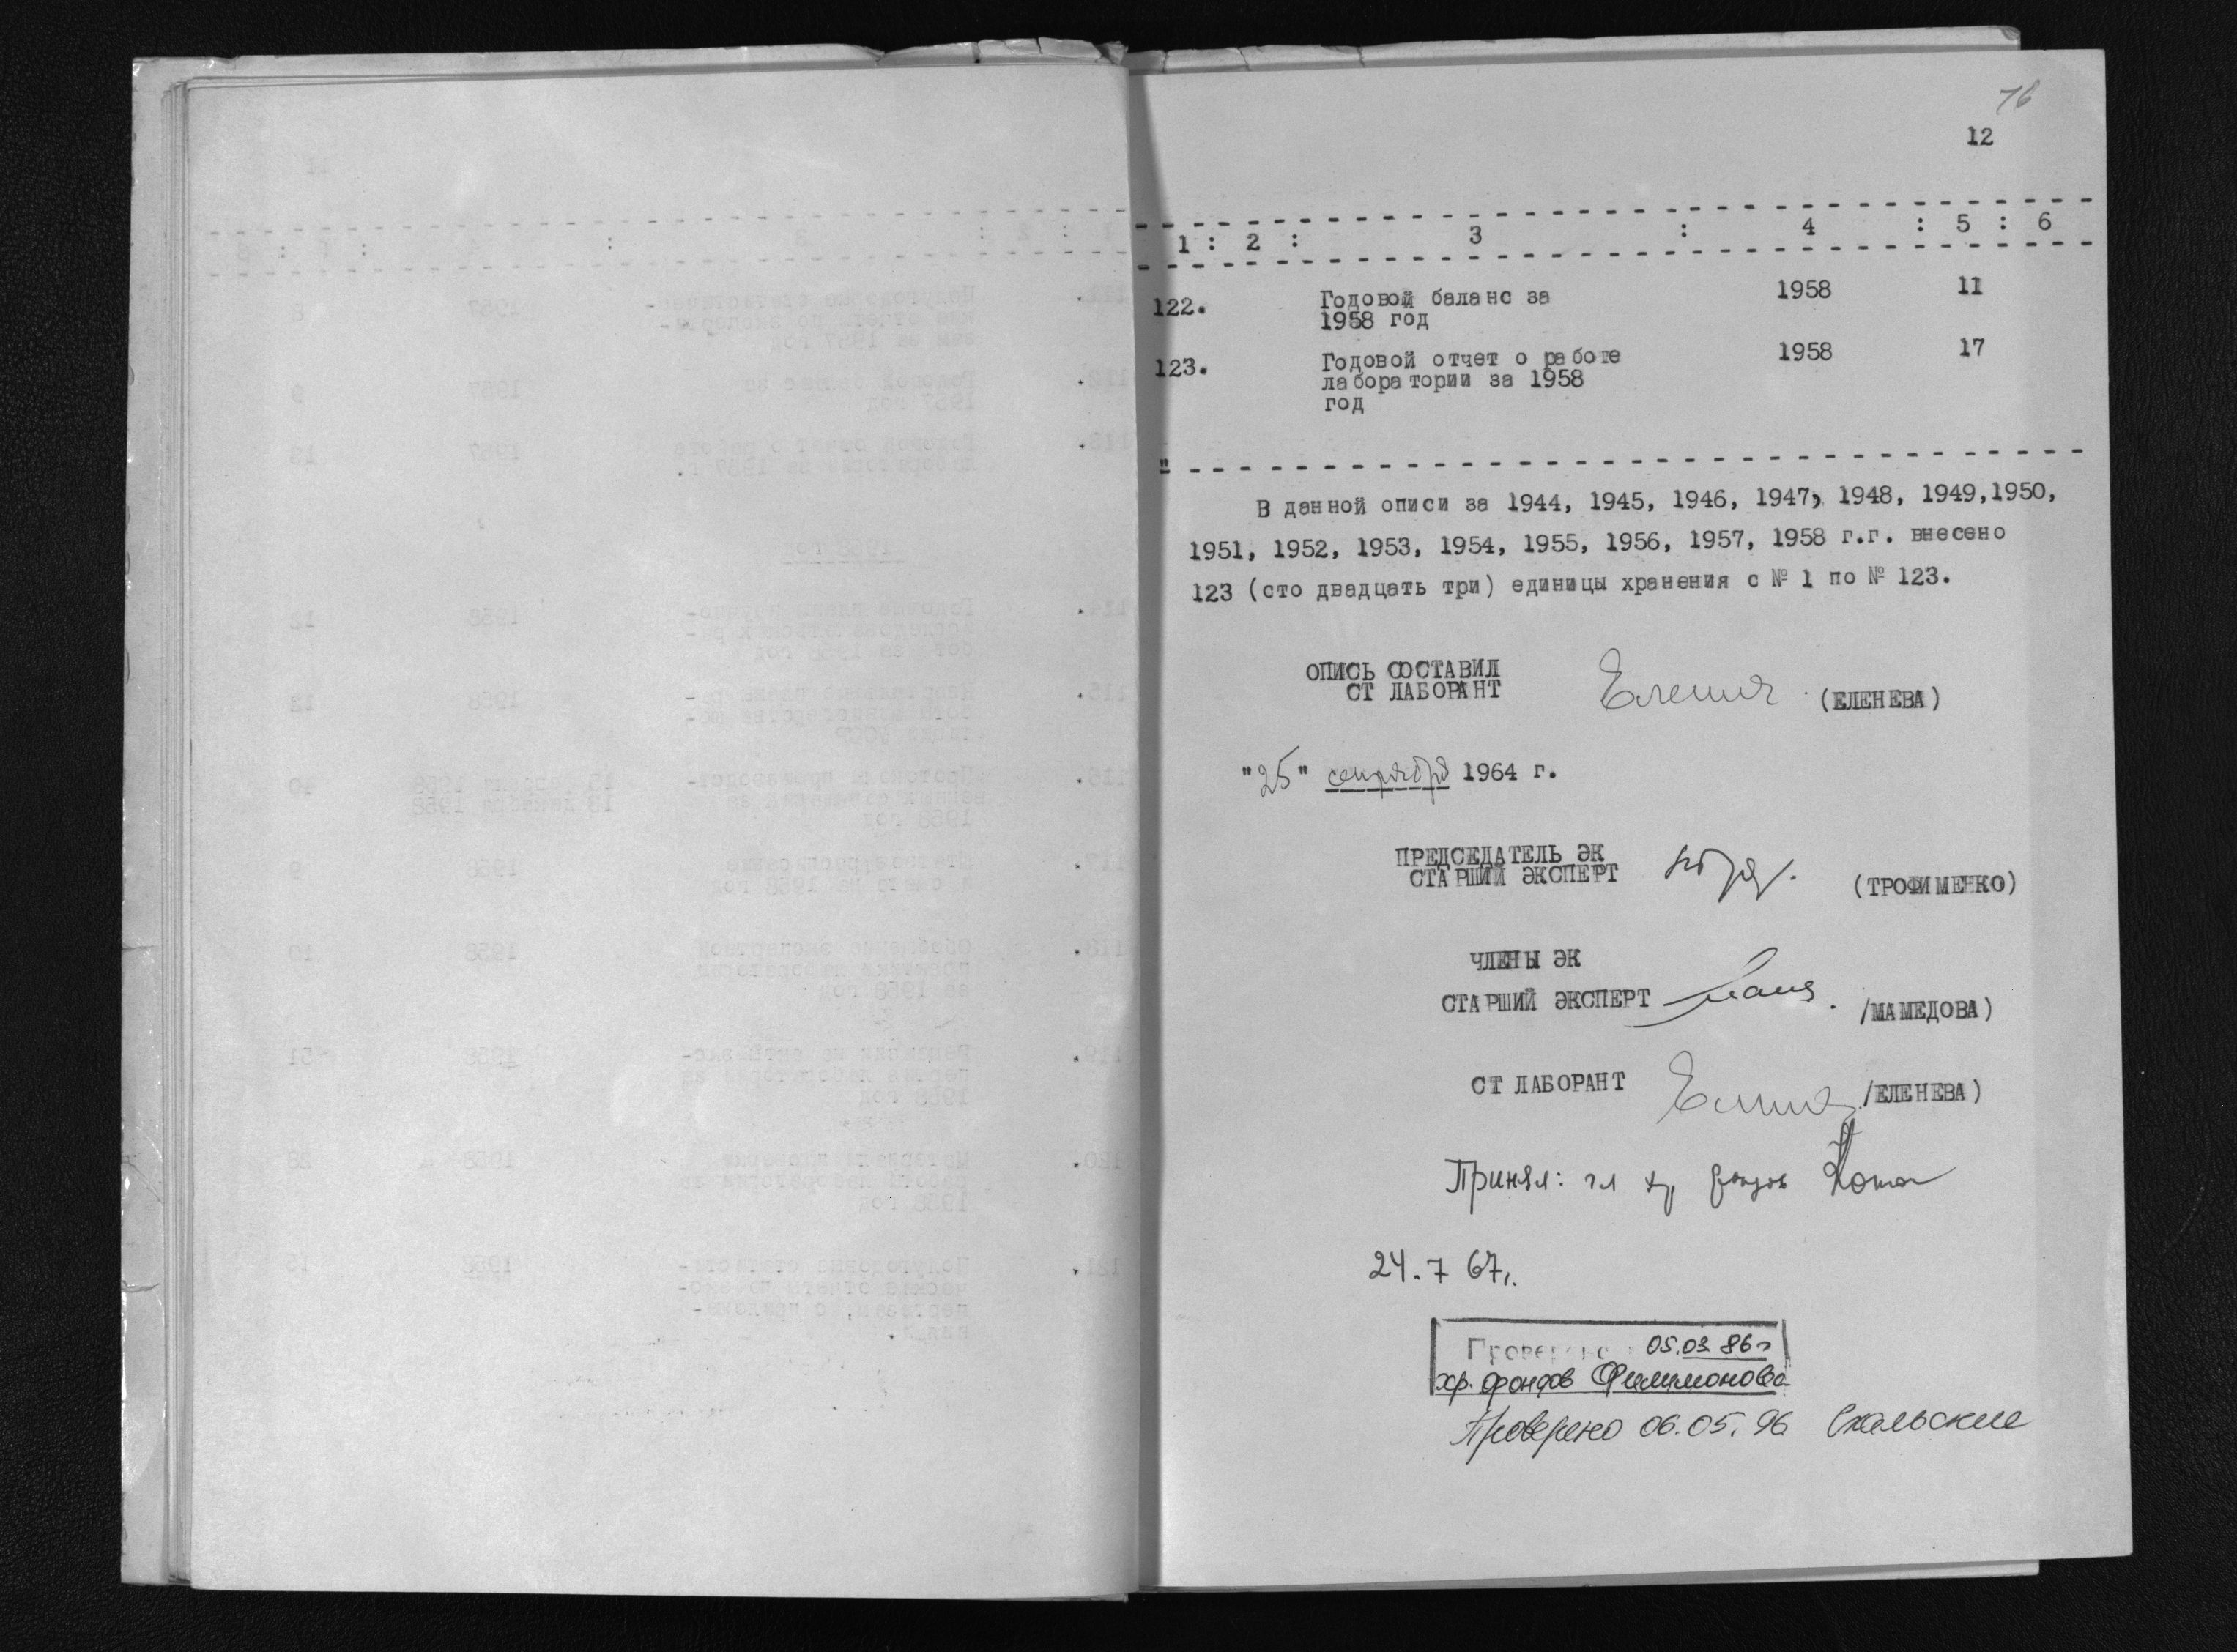 16
12
1 : 2 : 3 : 4 : 5 : 6
122. Годовой баланс за 1958 11
1958 год
123. Годовой отчет о работе 1958 17
лаборатории за 1958
год
В данной описи за 1944, 1945, 1946, 1947, 1948, 1949,1950,
1951, 1952, 1953, 1954, 1955, 1956, 1957, 1958 г.г. внесено
123 (сто двадцать три) единицы хранения с № 1 по № 123.
ОПИСЬ СОСТАВИЛ
СТ ЛАБОРАНТ (ЕЛЕНЕВА)
"25" сентября 1964 г.
ПРЕДСЕДАТЕЛЬ ЭК
СТАРШИЙ ЭКСПЕРТ (ТРОФИМЕНКО)
ЧЛЕНЫ ЭК
СТАРШИЙ ЭКСПЕРТ /МАМЕДОВА)
СТ ЛАБОРАНТ /ЕЛЕНЕВА)
Принял: гл хр фондов
24.7 67г.
Проверено 05.03 86г
хр. фондов Филимонова
Проверено 06.05.96